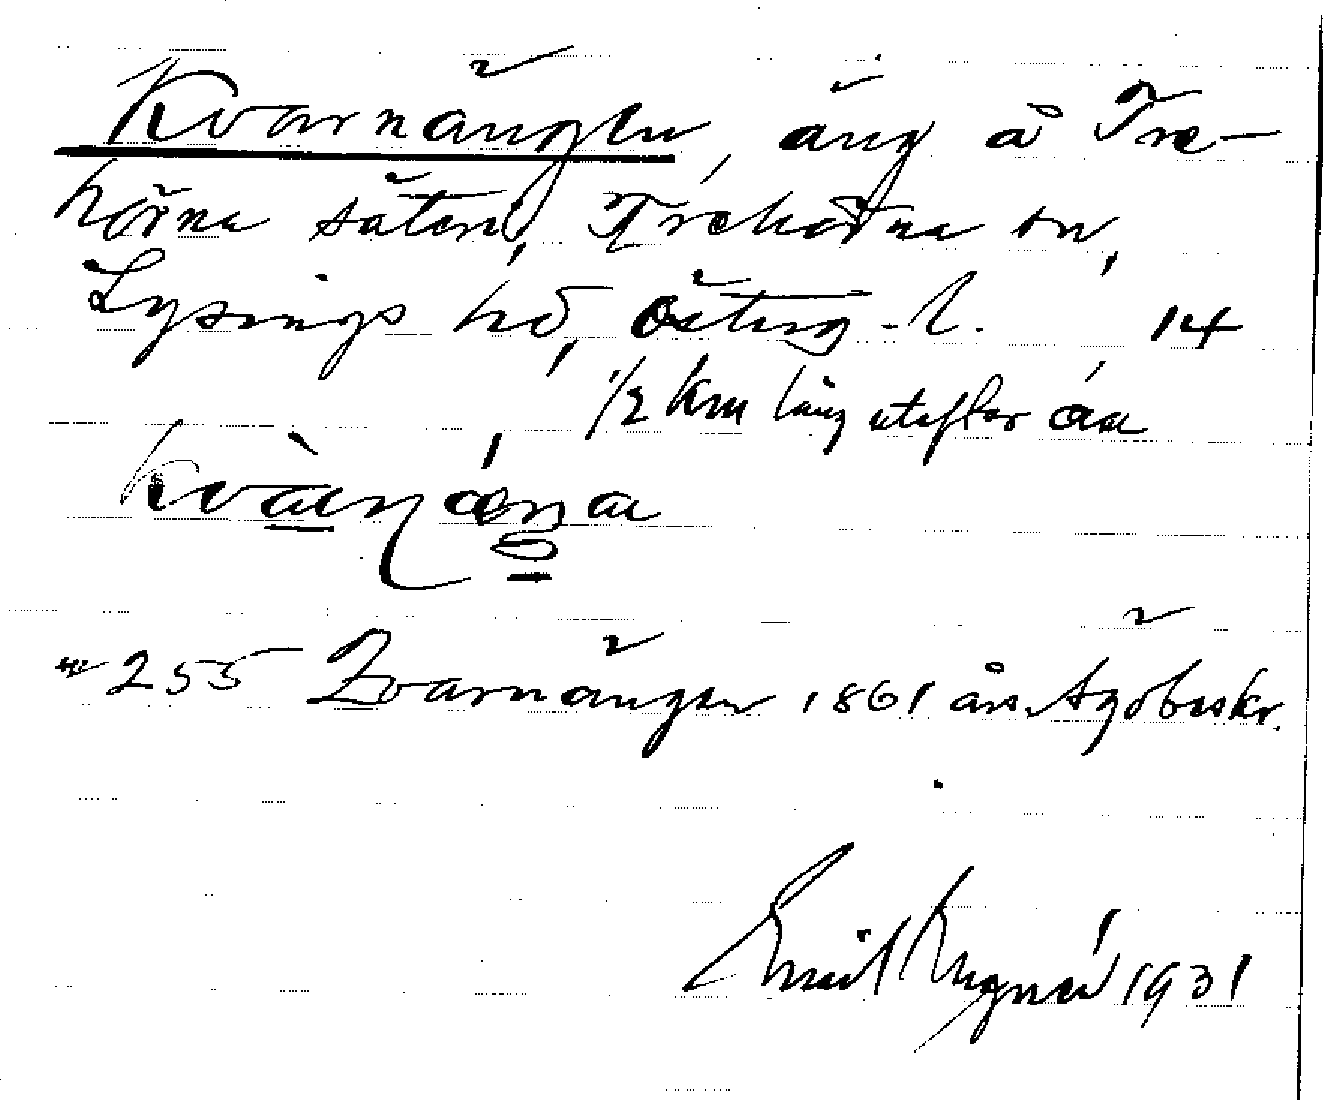 Kvarnängen, äng å Tre-
hörna säteri, Trehörna sn,
Lysings hd, Österg. l. 14
1/2 km lång utefter ån
255 Kvarnängen 1861 års ägobeskr.
Emil 1931